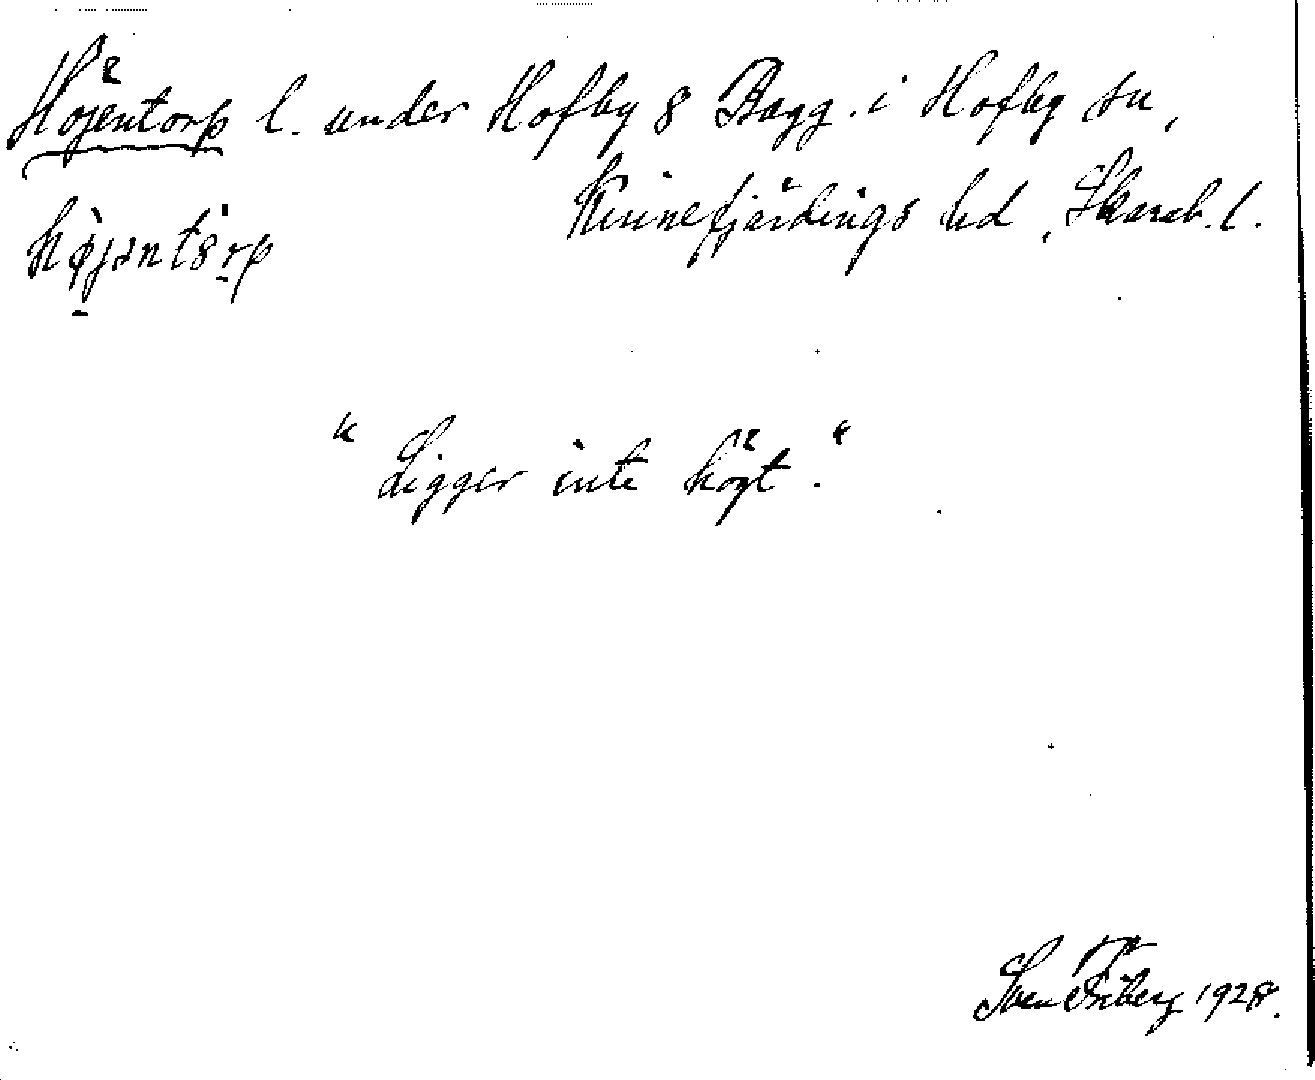 Höjentorp l. under Hofby 8 Bagg. i Hofby sn,
Kinnefjärdings hd, Skarab. l.
"Ligger inte högt."
Sven Friberg 1928.